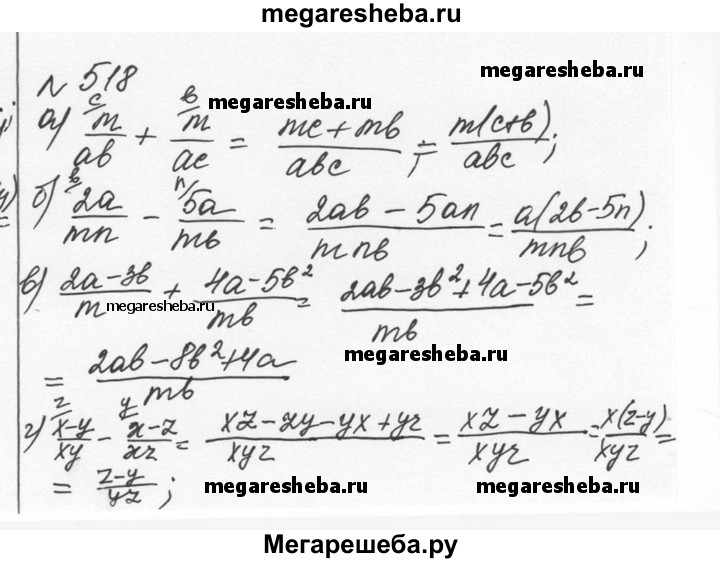 megaresheba.ru
№ 518
megaresheba.ru megaresheba.ru
а) m/ab (c) + m/ac (b) = (mc+mb)/abc = m(c+b)/abc;
б) 2a/mn (b) − 5a/mb (n) = (2ab−5an)/mnb = a(2b−5n)/mnb;
в) (2a−3b)/m + (4a−5b²)/mb = (2ab−3b²+4a−5b²)/mb =
megaresheba.ru
= (2ab−8b²+4a)/mb
megaresheba.ru
г) (x−y)/xy (z) − (x−z)/xz (y) = (xz−zy−yx+yz)/xyz = (xz−yx)/xyz = x(z−y)/xyz =
= (z−y)/yz;
megaresheba.ru megaresheba.ru
Мегарешеба.ру